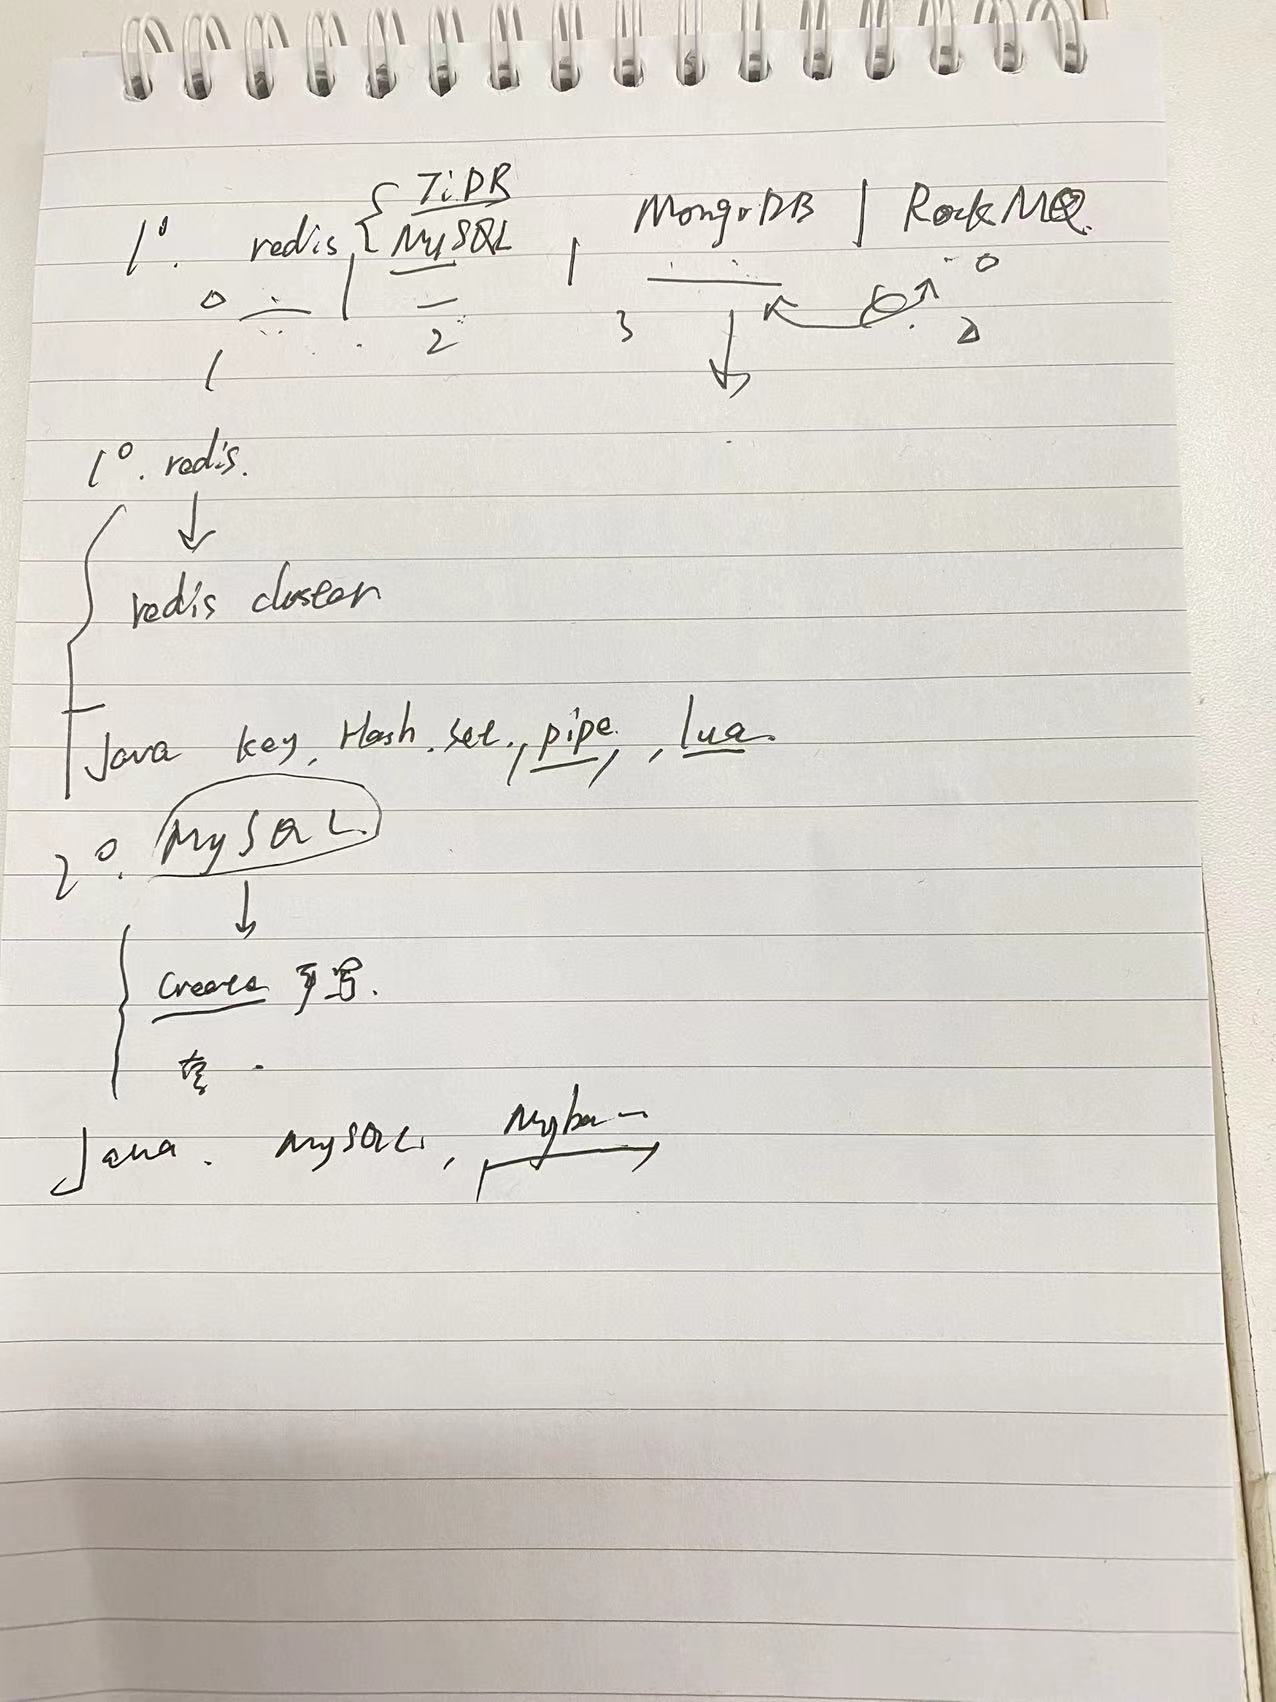 TiDB
1°. redis { MySQL | MongoDB | RockMQ.
1 2 3
1°. redis.
↓
redis cluster
Java key, Hash, set, pipe, lua
2°. MySQL
↓
Create 手写.
Java. MySQL,